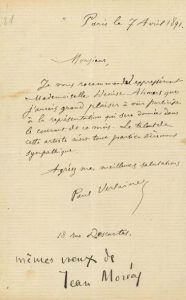 Paris le 7 Avril 1891.
Monsieur,
Je vous recommande expressément
Mademoiselle Denise Ahmers que
j'aurais grand plaisir à voir participer
à la représentation qui sera donnée dans
le courant de ce mois. Le talent de
cette artiste m'est tout particulièrement
sympathique.
Agréez mes meilleures salutations
Paul Verlaine
18 rue Descartes.
mêmes vœux de
Jean Moréas